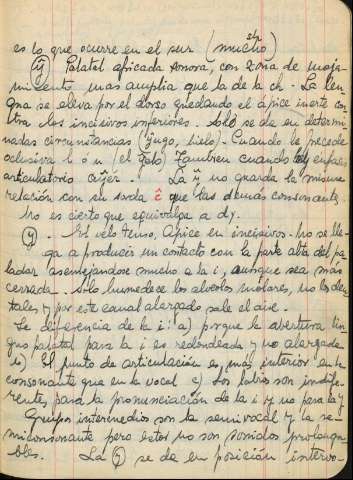 es lo que ocurre en el sur (mucho)
(ŷ) Palatal africada sonora, con zona de moja-
miento mas amplia que la de la ch. La len-
gua se eleva por el dorso quedando el ápice inerte con-
tra los incisivos inferiores. Solo se da en determi-
nadas circunstancias (yugo, hielo). Cuando le precede
oclusiva l o n (el yelo) Tambien cuando hay enfasis
articulatorio La ŷ no guarda la misma
relación con su sorda ĉ que las demás consonantes.
No es cierto que equivalga a dy.
(y). El velo tenso, Apice en incisivos. No se lle-
ga a producir un contacto con la parte alta del pa-
ladar asemejandose mucho a la i, aunque sea más
cerrada. Solo humedece los alveolos molares, no los den-
tales y por este canal alargado sale el aire.
Se diferencia de la i: a) porque la abertura lin-
guo palatal para la i es redondeada y no alargada
b) El punto de articulación es más interior en la
consonante que en la vocal c) Los labios son indife-
rente, para la pronunciación de la i y no para la y
Grupos intermedios son la semivocal y la se-
miconsonante pero estos no son sonidos prolonga-
bles. La (y) se da en posición intervo-